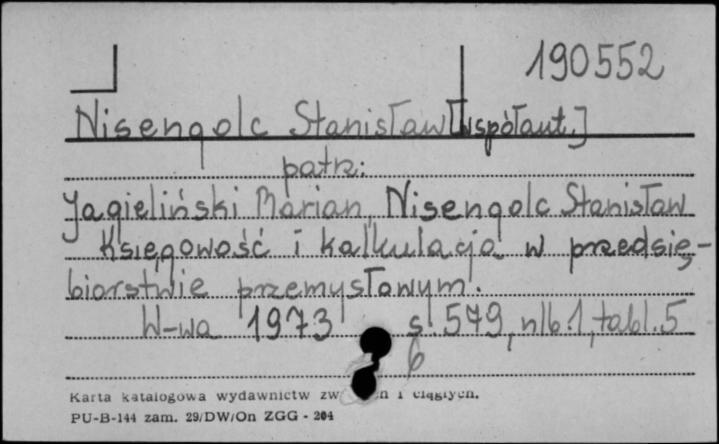 190552
Nisengolc Stanisław [współaut.]
patrz:
Jagieliński Marian, Nisengolc Stanisław
Księgowość i kalkulacja w przedsię-
biorstwie przemysłowym.
W-wa 1973 s. 579, nlb. 1, tabl. 5
6
Karta katalogowa wydawnictw zw n i ciągłych.
PU-B-144 zam. 29/DW/On ZGG - 204